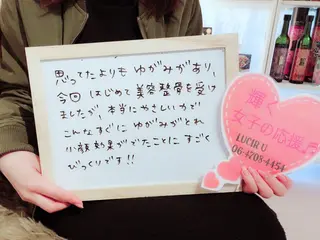 思ってたよりも ゆがみがあり、
今回 はじめて美容整骨を受け
ましたが、本当にやさしい力で
こんなすぐに ゆがみがとれ
小顔効果がでたことに すごく
びっくりです!!
輝く
女子の応援
LUCIR U
06-4708-4454